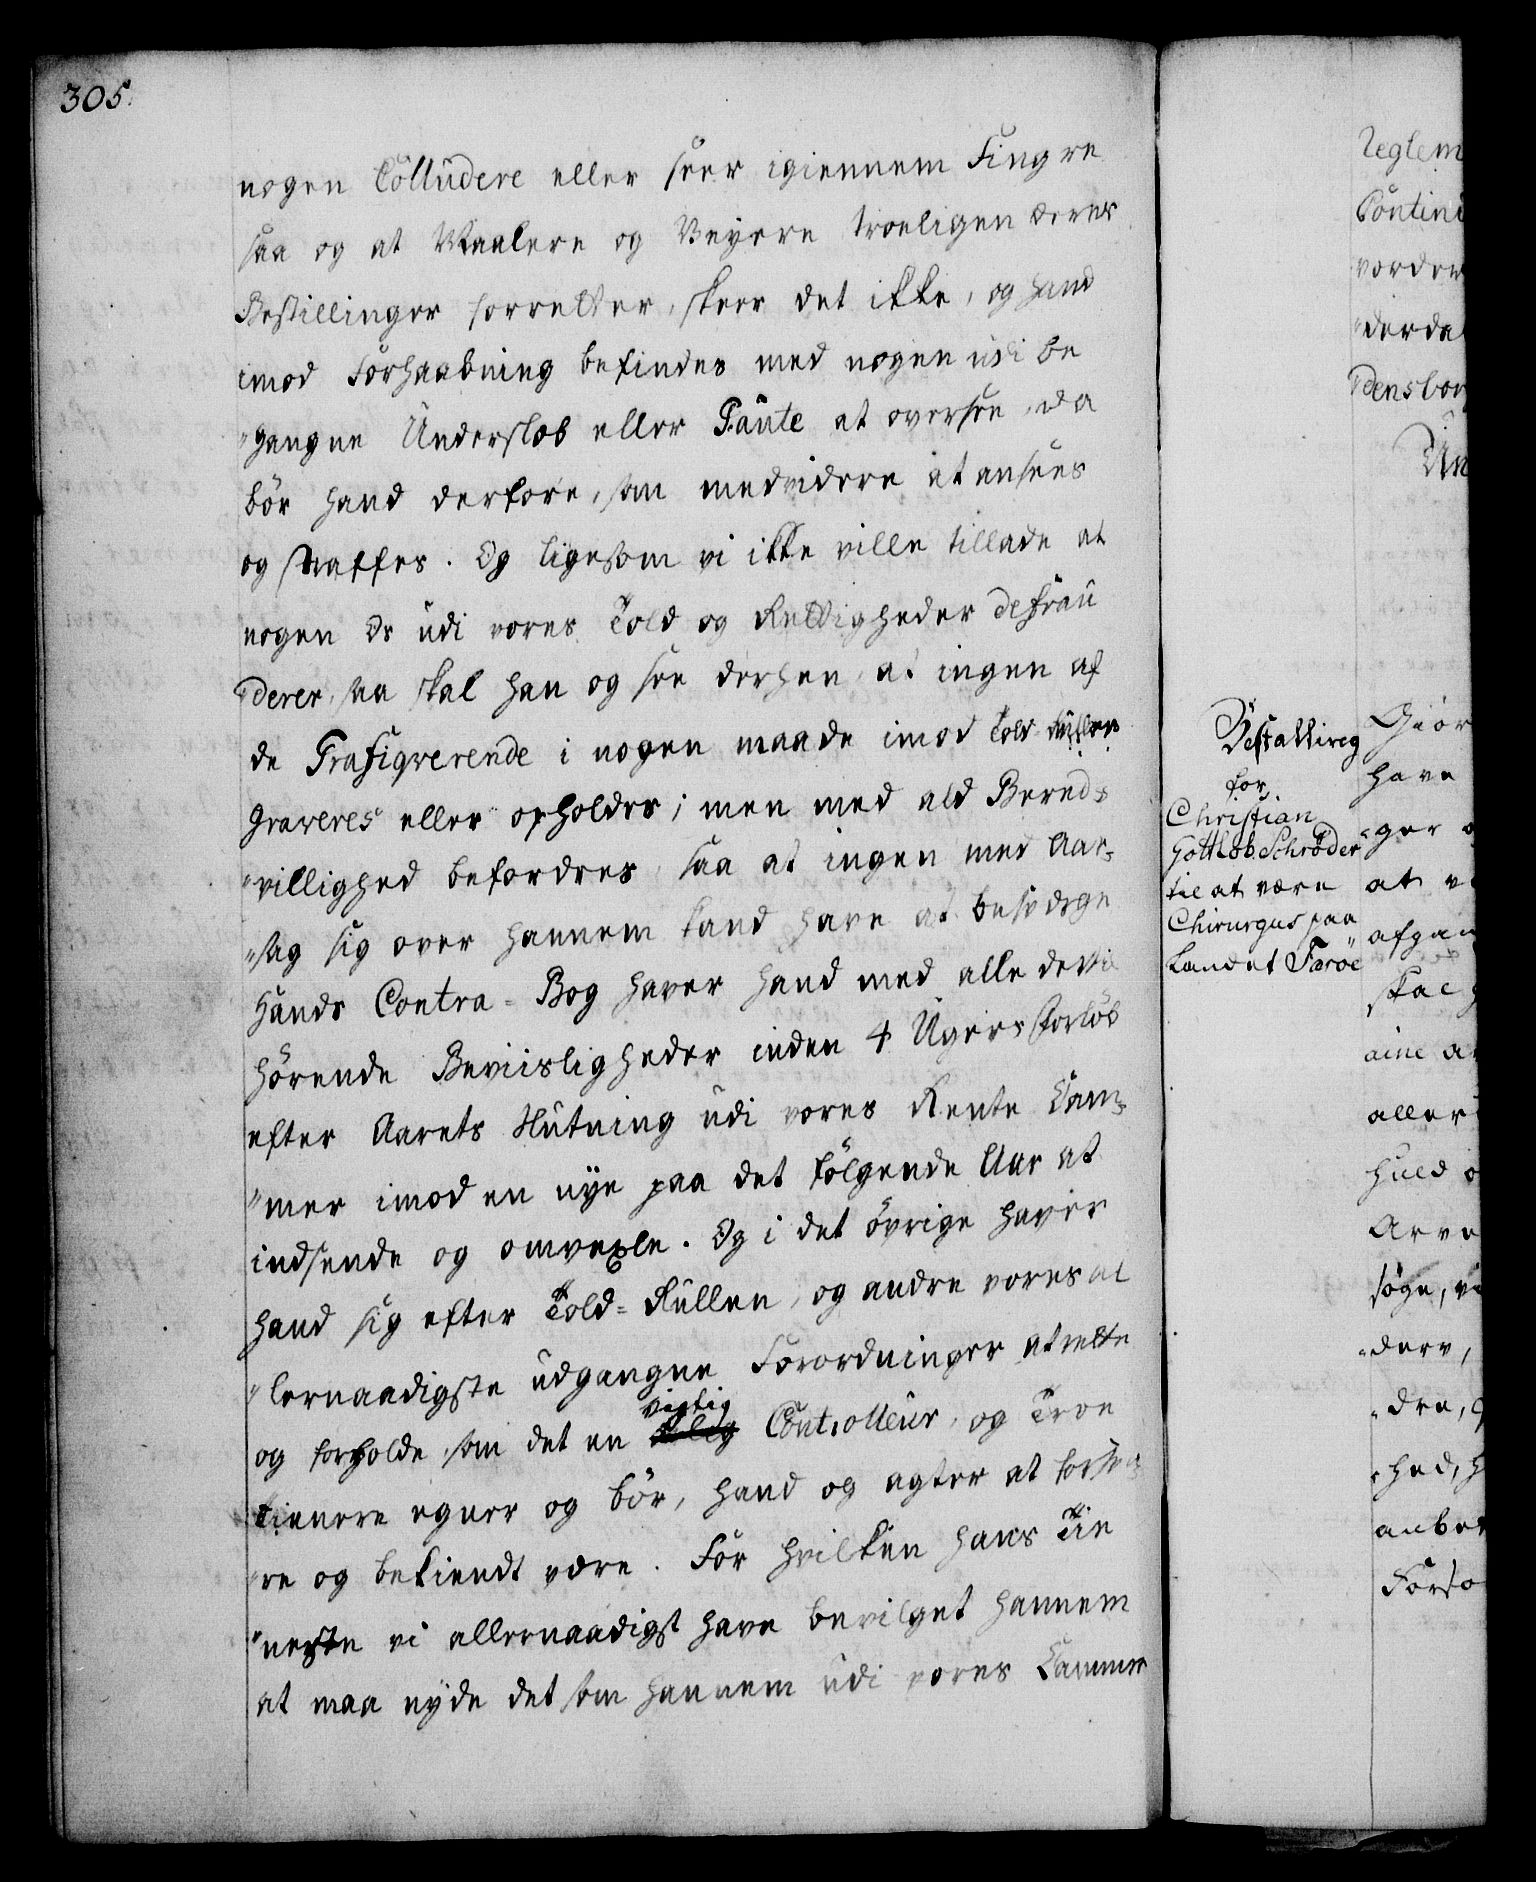 305.
nogen Colludere eller seer igiennem Fingre
saa og at Maalere og Veyere troeligen deres
Bestillinger forretter, skeer det ikke, og hand
imod Forhaabning befindes med nogen udi be
"gangne Underslæb eller Faute at oversee, da
bör hand derfore, som medvidere at ansees
og straffes. Og ligesom vi ikke ville tillade at
nogen Os udi vores Told og Rettigheder defrau
"derer, saa skal han og see derhen, at ingen af
de Trafiqverende i nogen maade imod Told Rullen
graveres eller opholdes; men med ald Bereds
"villighed befordres, saa at ingen med Aar¬
"sag sig over hannem kand have at besværge
Hands Contra=Bog haver hand med alle dertil
hörende Beviisligheder inden 4 Ugers Forlöb
efter Aarets Slutning udi vores Rente Cam¬
"mer imod en nye paa det fölgende Aar at
indsende og omvexle. Og i det övrige haver
hand sig efter Told=Rullen, og andre vores al
"lernaadigste udgangne Forordninger at rette
og forholde, som det en vigtig Controlleur, og Troe
tienere egner og bör, hand og agter at forsva¬
"re og bekiendt være. For hvilken hans Tie
"neste vi allernaadigst have bevilget hannem
at maa nyde det som hannem udi vores Cammer
Bestalling
for
Christian
Gottlob Schröder
til at være
Chirurgus paa
Landet Faröe
Reglem
Contin
vorder
"derda
densbor
Un
Giör
have
"ger
at v
afgan
skal
aller
huld
Arve
söge, v
"dere,
"dre,
"hed, h
anbe
Forso